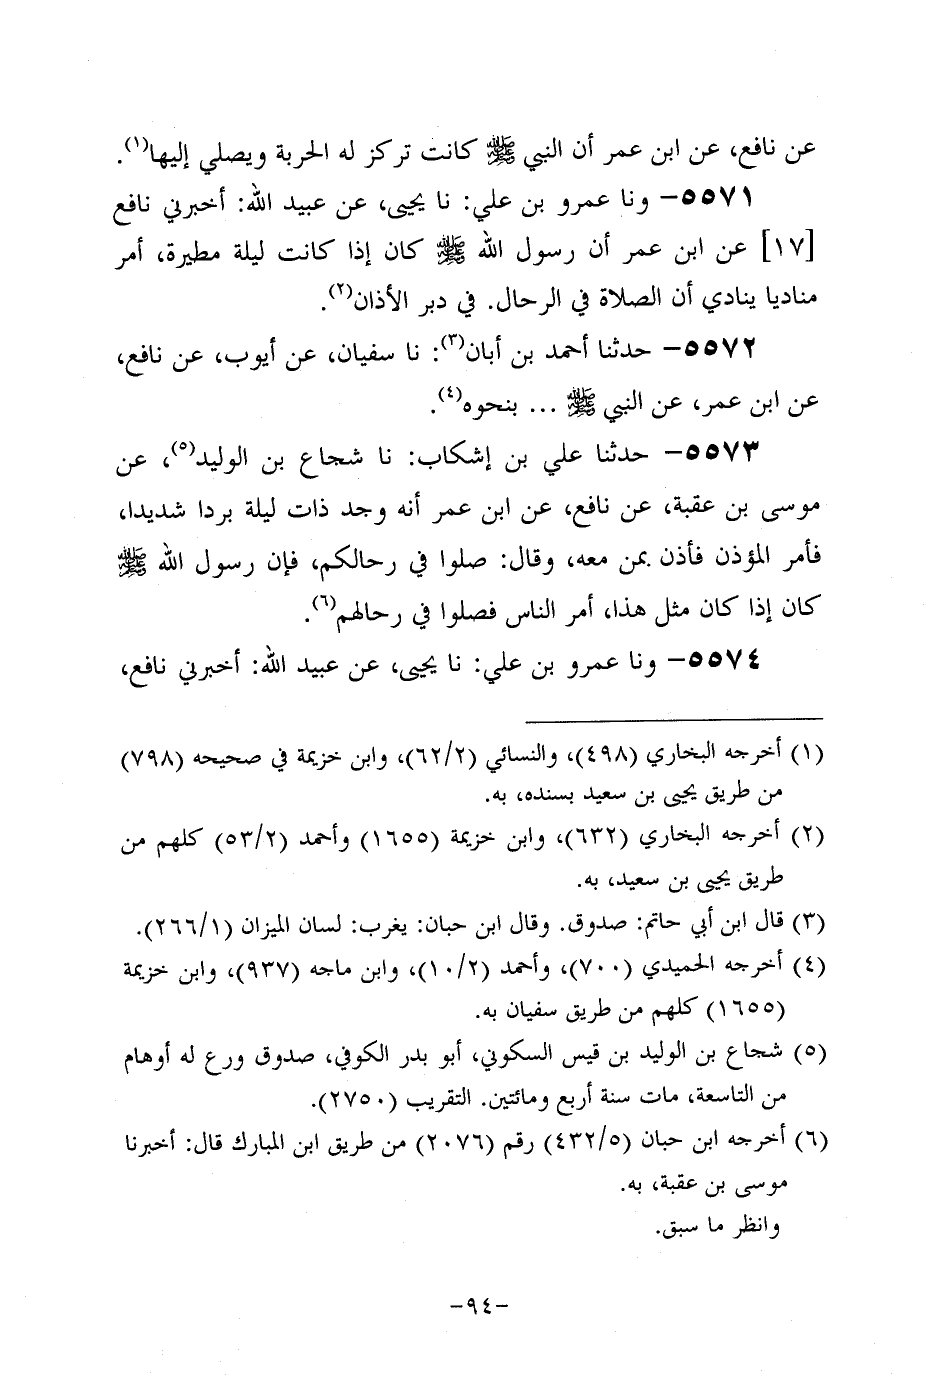 عن نافع، عن ابن عمر أن النبي ﷺ كانت تركز له الحربة ويصلي إليها(١).
٥٥٧١- ونا عمرو بن علي: نا يحيى، عن عبيد الله: أخبرني نافع
[١٧] عن ابن عمر أن رسول الله ﷺ كان إذا كانت ليلة مطيرة، أمر
مناديا ينادي أن الصلاة في الرحال. في دبر الأذان(٢).
٥٥٧٢- حدثنا أحمد بن أبان(٣): نا سفيان، عن أيوب، عن نافع،
عن ابن عمر، عن النبي ﷺ ... بنحوه(٤).
٥٥٧٣- حدثنا علي بن إشكاب: نا شجاع بن الوليد(٥)، عن
موسى بن عقبة، عن نافع، عن ابن عمر أنه وجد ذات ليلة بردا شديدا،
فأمر المؤذن فأذن بمن معه، وقال: صلوا في رحالكم، فإن رسول الله ﷺ
كان إذا كان مثل هذا، أمر الناس فصلوا في رحالهم(٦).
٥٥٧٤- ونا عمرو بن علي: نا يحيى، عن عبيد الله: أخبرني نافع،
(١) أخرجه البخاري (٤٩٨)، والنسائي (٦٢/٢)، وابن خزيمة في صحيحه (٧٩٨)
من طريق يحيى بن سعيد بسنده، به.
(٢) أخرجه البخاري (٦٣٢)، وابن خزيمة (١٦٥٥) وأحمد (٥٣/٢) كلهم من
طريق يحيى بن سعيد، به.
(٣) قال ابن أبي حاتم: صدوق. وقال ابن حبان: يغرب: لسان الميزان (٢٦٦/١).
(٤) أخرجه الحميدي (٧٠٠)، وأحمد (١٠/٢)، وابن ماجه (٩٣٧)، وابن خزيمة
(١٦٥٥) كلهم من طريق سفيان به.
(٥) شجاع بن الوليد بن قيس السكوني، أبو بدر الكوفي، صدوق ورع له أوهام
من التاسعة، مات سنة أربع ومائتين. التقريب (٢٧٥٠).
(٦) أخرجه ابن حبان (٤٣٢/٥) رقم (٢٠٧٦) من طريق ابن المبارك قال: أخبرنا
موسى بن عقبة، به.
وانظر ما سبق.
-٩٤-